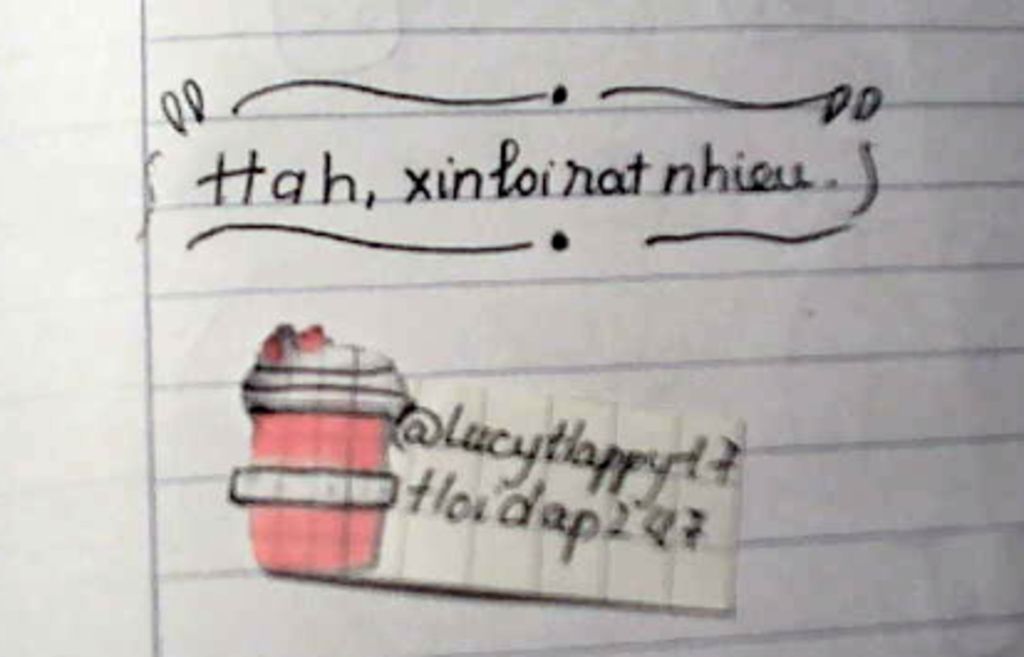 Hah, xin loi rat nhieu.
@LucyHappy17
Hoidap247